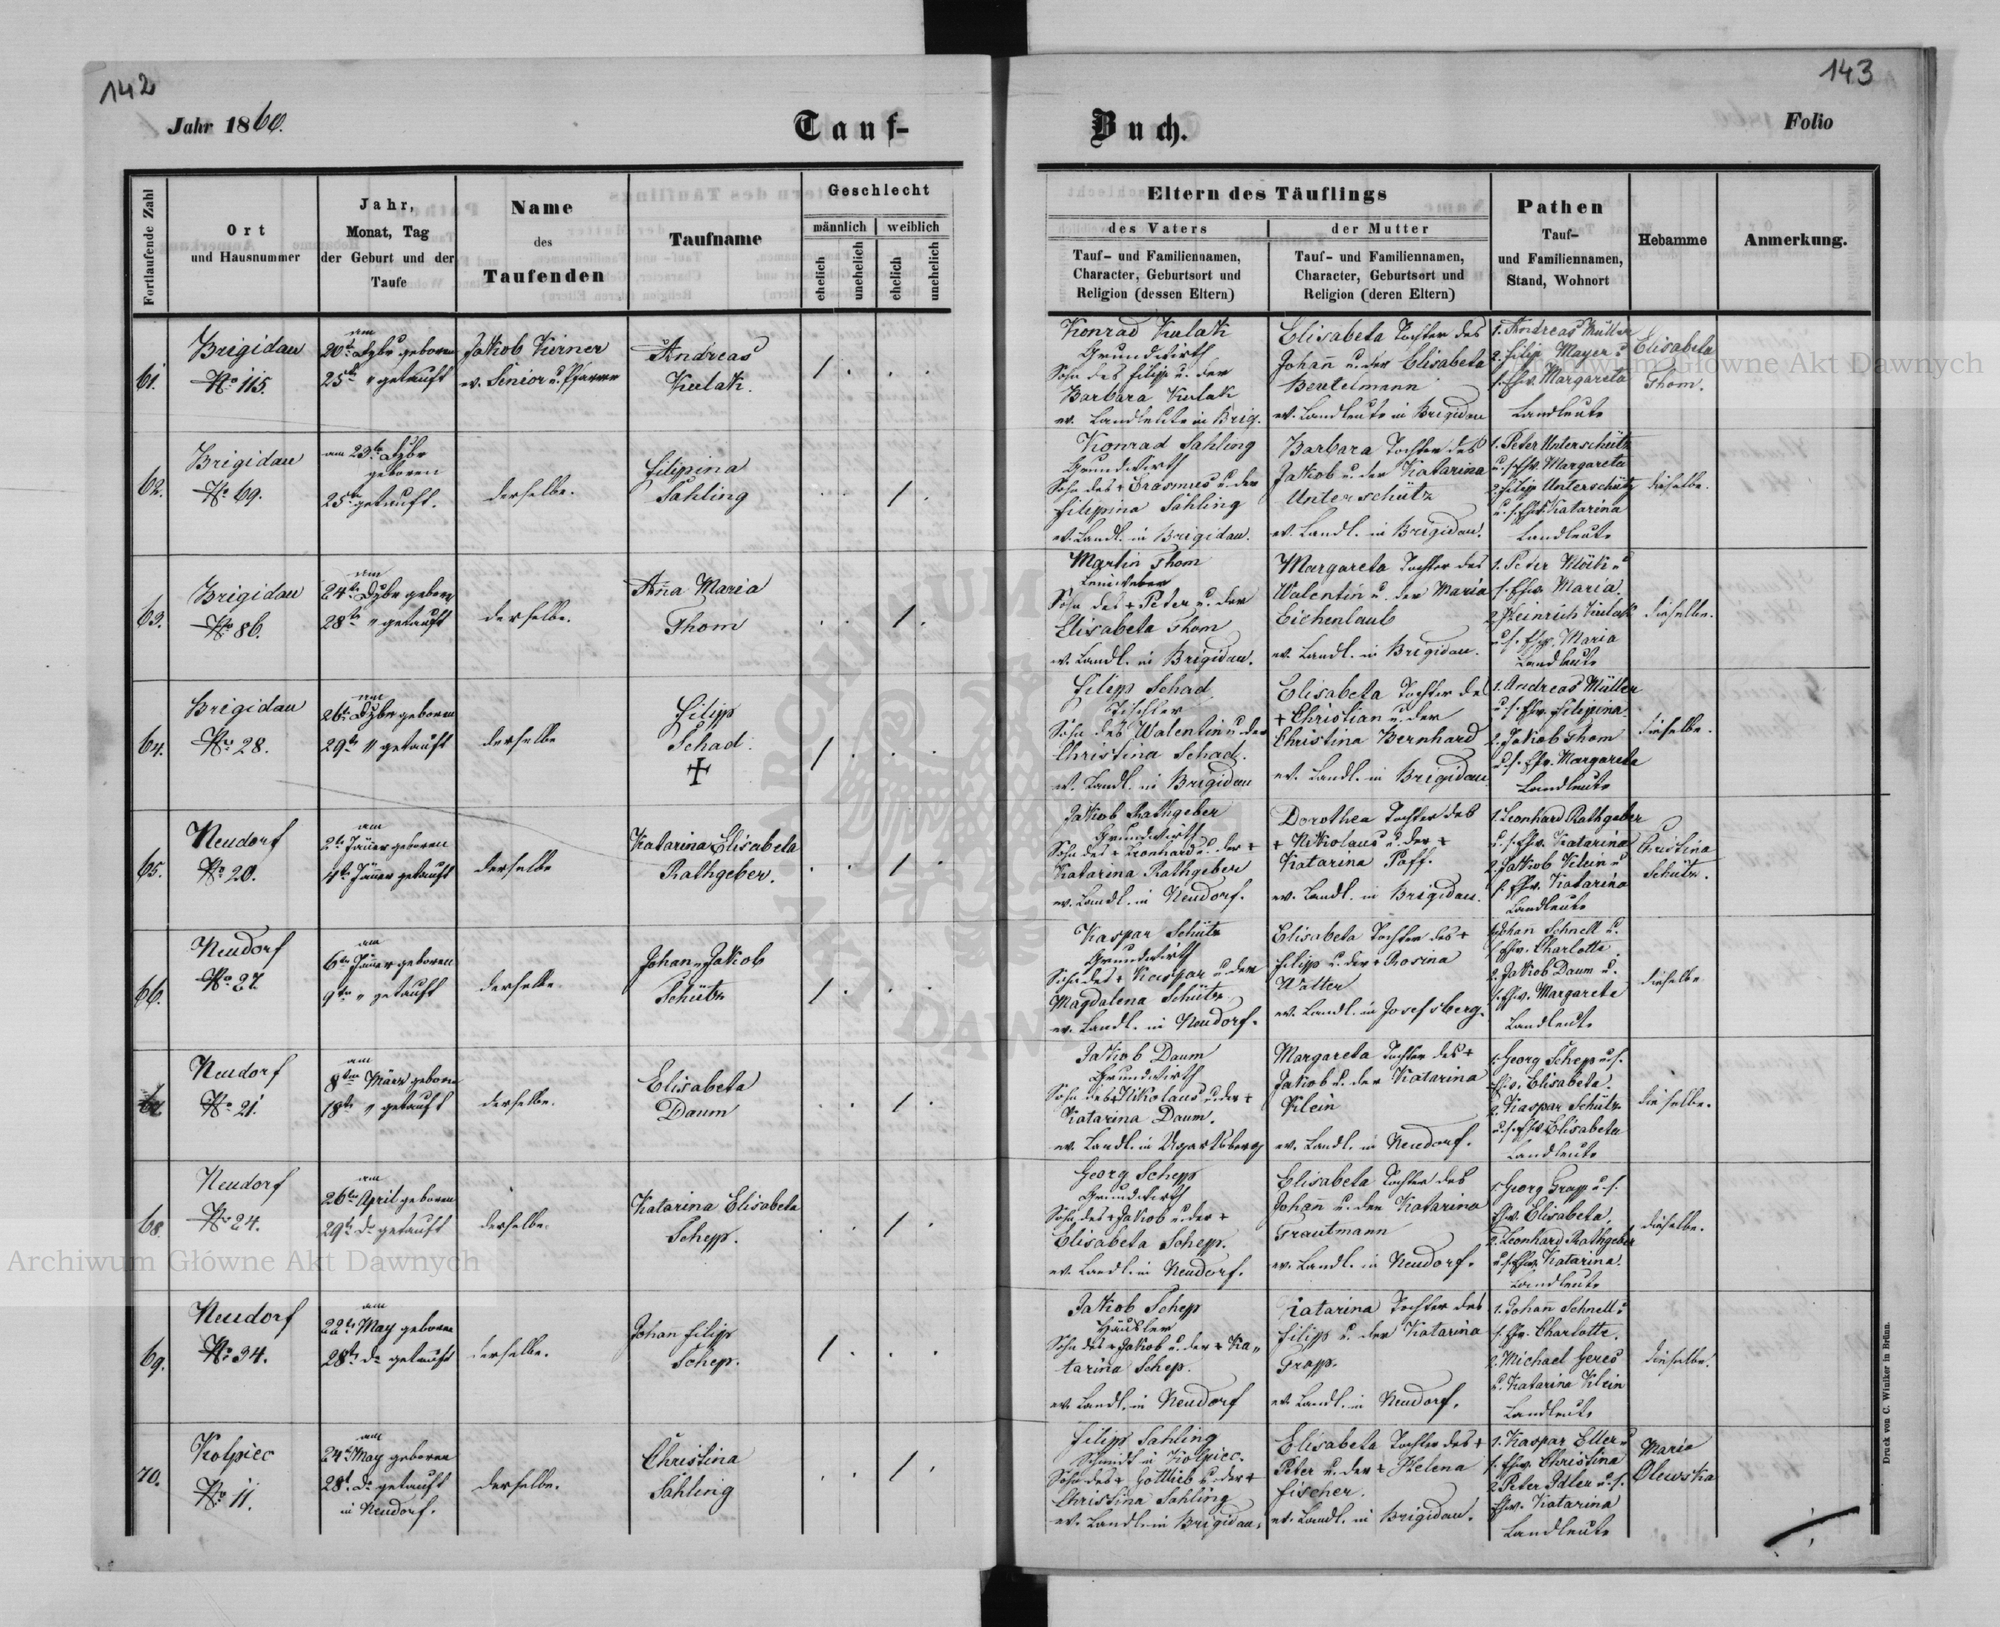 142
Jahr 1860.
Tauf-
Fortlaufende Zahl
Ort
und Hausnummer
Jahr,
Monat, Tag
der Geburt und der
Taufe
Name
des
Taufenden
Taufname
Geschlecht
männlich
weiblich
ehelich
unehelich
ehelich
unehelich
61.
Brigidau
No 115.
am
20t Dzbr geboren
25t " getauft
Jakob Kirner
ev. Senior u. Pfarrer
Andreas
Kulak.
62.
Brigidau
No 69.
am 23t Dzbr
geboren
25t getauft.
derselbe.
Filipina
Sahling
63.
Brigidau
No 86.
am
24t Dzbr geboren
28t " getauft
derselbe.
Anna Maria
Thom
64.
Brigidau
No 28.
am
26t Dzbr geboren
29t " getauft
derselbe
Filipp
Schad.
65.
Neudorf
No 20.
am
2t Jäner geboren
4t Jäner getauft
derselbe
Katarina Elisabeta
Rathgeber.
66.
Neudorf
No 27.
am
6t Jäner geboren
9t " getauft
derselbe.
Johan Jakob
Schütz
Neudorf
No 21.
am
8t März geboren
18t " getauft
derselbe.
Elisabeta
Daum
68.
Neudorf
No 24.
am
26t April geboren
29t do getauft
derselbe.
Katarina Elisabeta
Schepp.
69.
Neudorf
No 34.
am
22t May geboren
28t do getauft
derselbe.
Johan Filipp
Schep.
70.
Kolpiec
No 11.
am
24t May geboren
28t do getauft
in Neudorf.
derselbe.
Christina
Sahling
143
Buch.
Folio
Eltern des Täuflings
des Vaters
der Mutter
Tauf- und Familiennamen,
Character, Geburtsort und
Religion (dessen Eltern)
Tauf- und Familiennamen,
Character, Geburtsort und
Religion (deren Eltern)
Pathen
Tauf-
und Familiennamen,
Stand, Wohnort
Hebamme
Anmerkung.
Konrad Kulak
Grundwirth
Sohn des Filipp u. der
Barbara Kulak
ev. Landleute in Brig.
Elisabeta Tochter des
Johan u. der Elisabeta
Beutelmann
ev. Landleute in Brigidau
1. Andreas Müller
2. Filip Mayer u
s. Ehw. Margareta
Landleute
Elisabeta
Thom.
Konrad Sahling
Grundwirth
Sohn des + Erasmus u. der
Filippina Sahling
ev. Landl. in Brigidau.
Barbara Tochter des
Jakob u. der Katarina
Unterschütz
ev. Landl. in Brigidau.
1. Peter Unterschütz
u. s. Ehw. Margareta
2. Filip Unterschütz
u. s. Ehw. Katarina
Landleute
dieselbe.
Martin Thom
Leinweber
Sohn des + Peter u. der
Elisabeta Thom
ev. Landl. in Brigidau.
Margareta Tochter des
Walentin u. der Maria
Eichenlaub
ev. Landl. in Brigidau.
s. Ehw. Maria.
2. Heinrich Kulak
u. s. Ehw. Maria
Landleute
dieselbe.
Filipp Schad
Tischler
Sohn des Walentin u der
Christina Schad.
ev. Landl. in Brigidau
Elisabeta Tochter de
+ Christian u. der
Christina Bernhard
ev. Landl. in Brigidau
1. Andreas Müller
u. s. Ehw. Filipina.
2. Jakob Thom
u. s. Ehw. Margareta
Landleute
dieselbe.
Jakob Rathgeber
Grundwirth
Sohn des + Leonhard u. der +
Katarina Rathgeber
ev. Landl. in Neudorf.
Dorothea Tochter des
+ Nikolaus u. der +
Katarina Paff.
ev. Landl. in Brigidau.
1. Leonhard Rathgeber
u. s. Ehw. Katarina
2. Jakob Klein u
s. Ehw. Katarina
Landleute
Christina
Schütz.
Kaspar Schütz
Grundwirth
Sohn des + Kaspar u. der
Magdalena Schütz
ev. Landl. in Neudorf.
Elisabeta Tochter des +
Filipp u. der + Rosina
Walter
ev. Landl. in Josefsberg.
1. Johan Schnell u.
s. Ehw. Charlotte.
2. Jakob Daum u.
s. Ehw. Margareta
Landleute
dieselbe
Jakob Daum
Grundwirth
Sohn des + Nikolaus u. der +
Katarina Daum.
ev. Landl. in Ugartsberg
Margareta Tochter des +
Jakob u. der Katarina
Klein
ev. Landl. in Neudorf.
1. Georg Schepp u. s.
Ehw. Elisabeta.
2. Kaspar Schütz
u. s. Ehw. Elisabeta
Landleute
dieselbe.
Georg Schepp
Grundwirth
Sohn des + Jakob u. der +
Elisabeta Schepp.
ev. Landl. in Neudorf.
Elisabeta Tochter des
Johan u. der Katarina
Trautmann
ev. Landl. in Neudorf.
1. Georg Grapp u. s.
Ehw. Elisabeta.
2. Leonhard Rathgeber
u. s. Ehw. Katarina.
Landleute
dieselbe.
Jakob Schepp
Häusler
Sohn des + Jakob u. der + Ka-
tarina Schep.
ev. Landl. in Neudorf
Katarina Tochter des
Filipp u. der Katarina
Grapp.
ev. Landl. in Neudorf.
1. Johan Schnell u
s. Ehw. Charlotte.
2. Michael Geres
u. Katarina Klein
Landleute
dieselbe.
Filipp Sahling
Schmidt in Kolpiec.
Sohn des + Gottlieb u. der +
Christina Sahling
ev. Landl. in Brigidau.
Elisabeta Tochter des +
Peter u. der + Helena
Fischer.
ev. Landl. in Brigidau.
1. Kaspar Eller u
s. Ehw. Christina
2. Peter Adler u. s.
Ehw. Katarina
Landleute
Maria
Olewska
Druck von C. Winiker in Brünn.
Archiwum Główne Akt Dawnych
Archiwum Główne Akt Dawnych